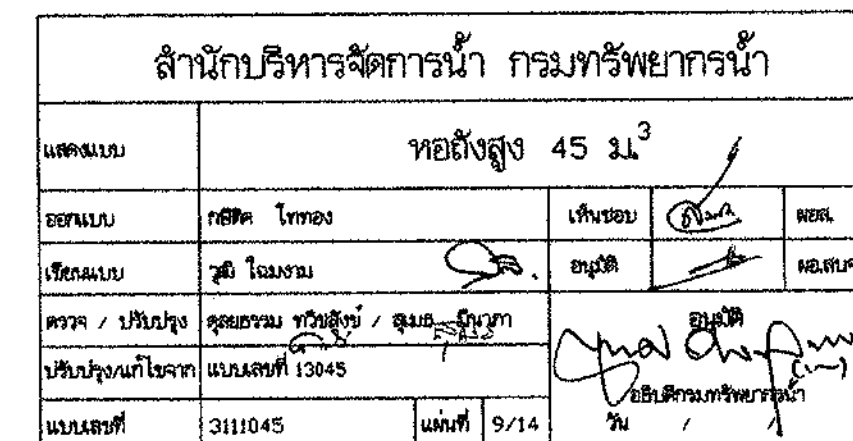 สำนักบริหารจัดการน้ำ กรมทรัพยากรน้ำ
แสดงแบบ หอถังสูง 45 ม.³
ออกแบบ โททอง เห็นชอบ ผอส.
เขียนแบบ วุฒิ โฉมงาม อนุมัติ
ตรวจ / ปรับปรุง ตุลยธรรม ทวิชสังข์ / สุเมธ มีนาภา อนุมัติ
ปรับปรุง/แก้ไขจาก แบบเลขที่ 13045
อธิบดีกรมทรัพยากรน้ำ
แบบเลขที่ 3111045 แผ่นที่ 9/14 วัน / /